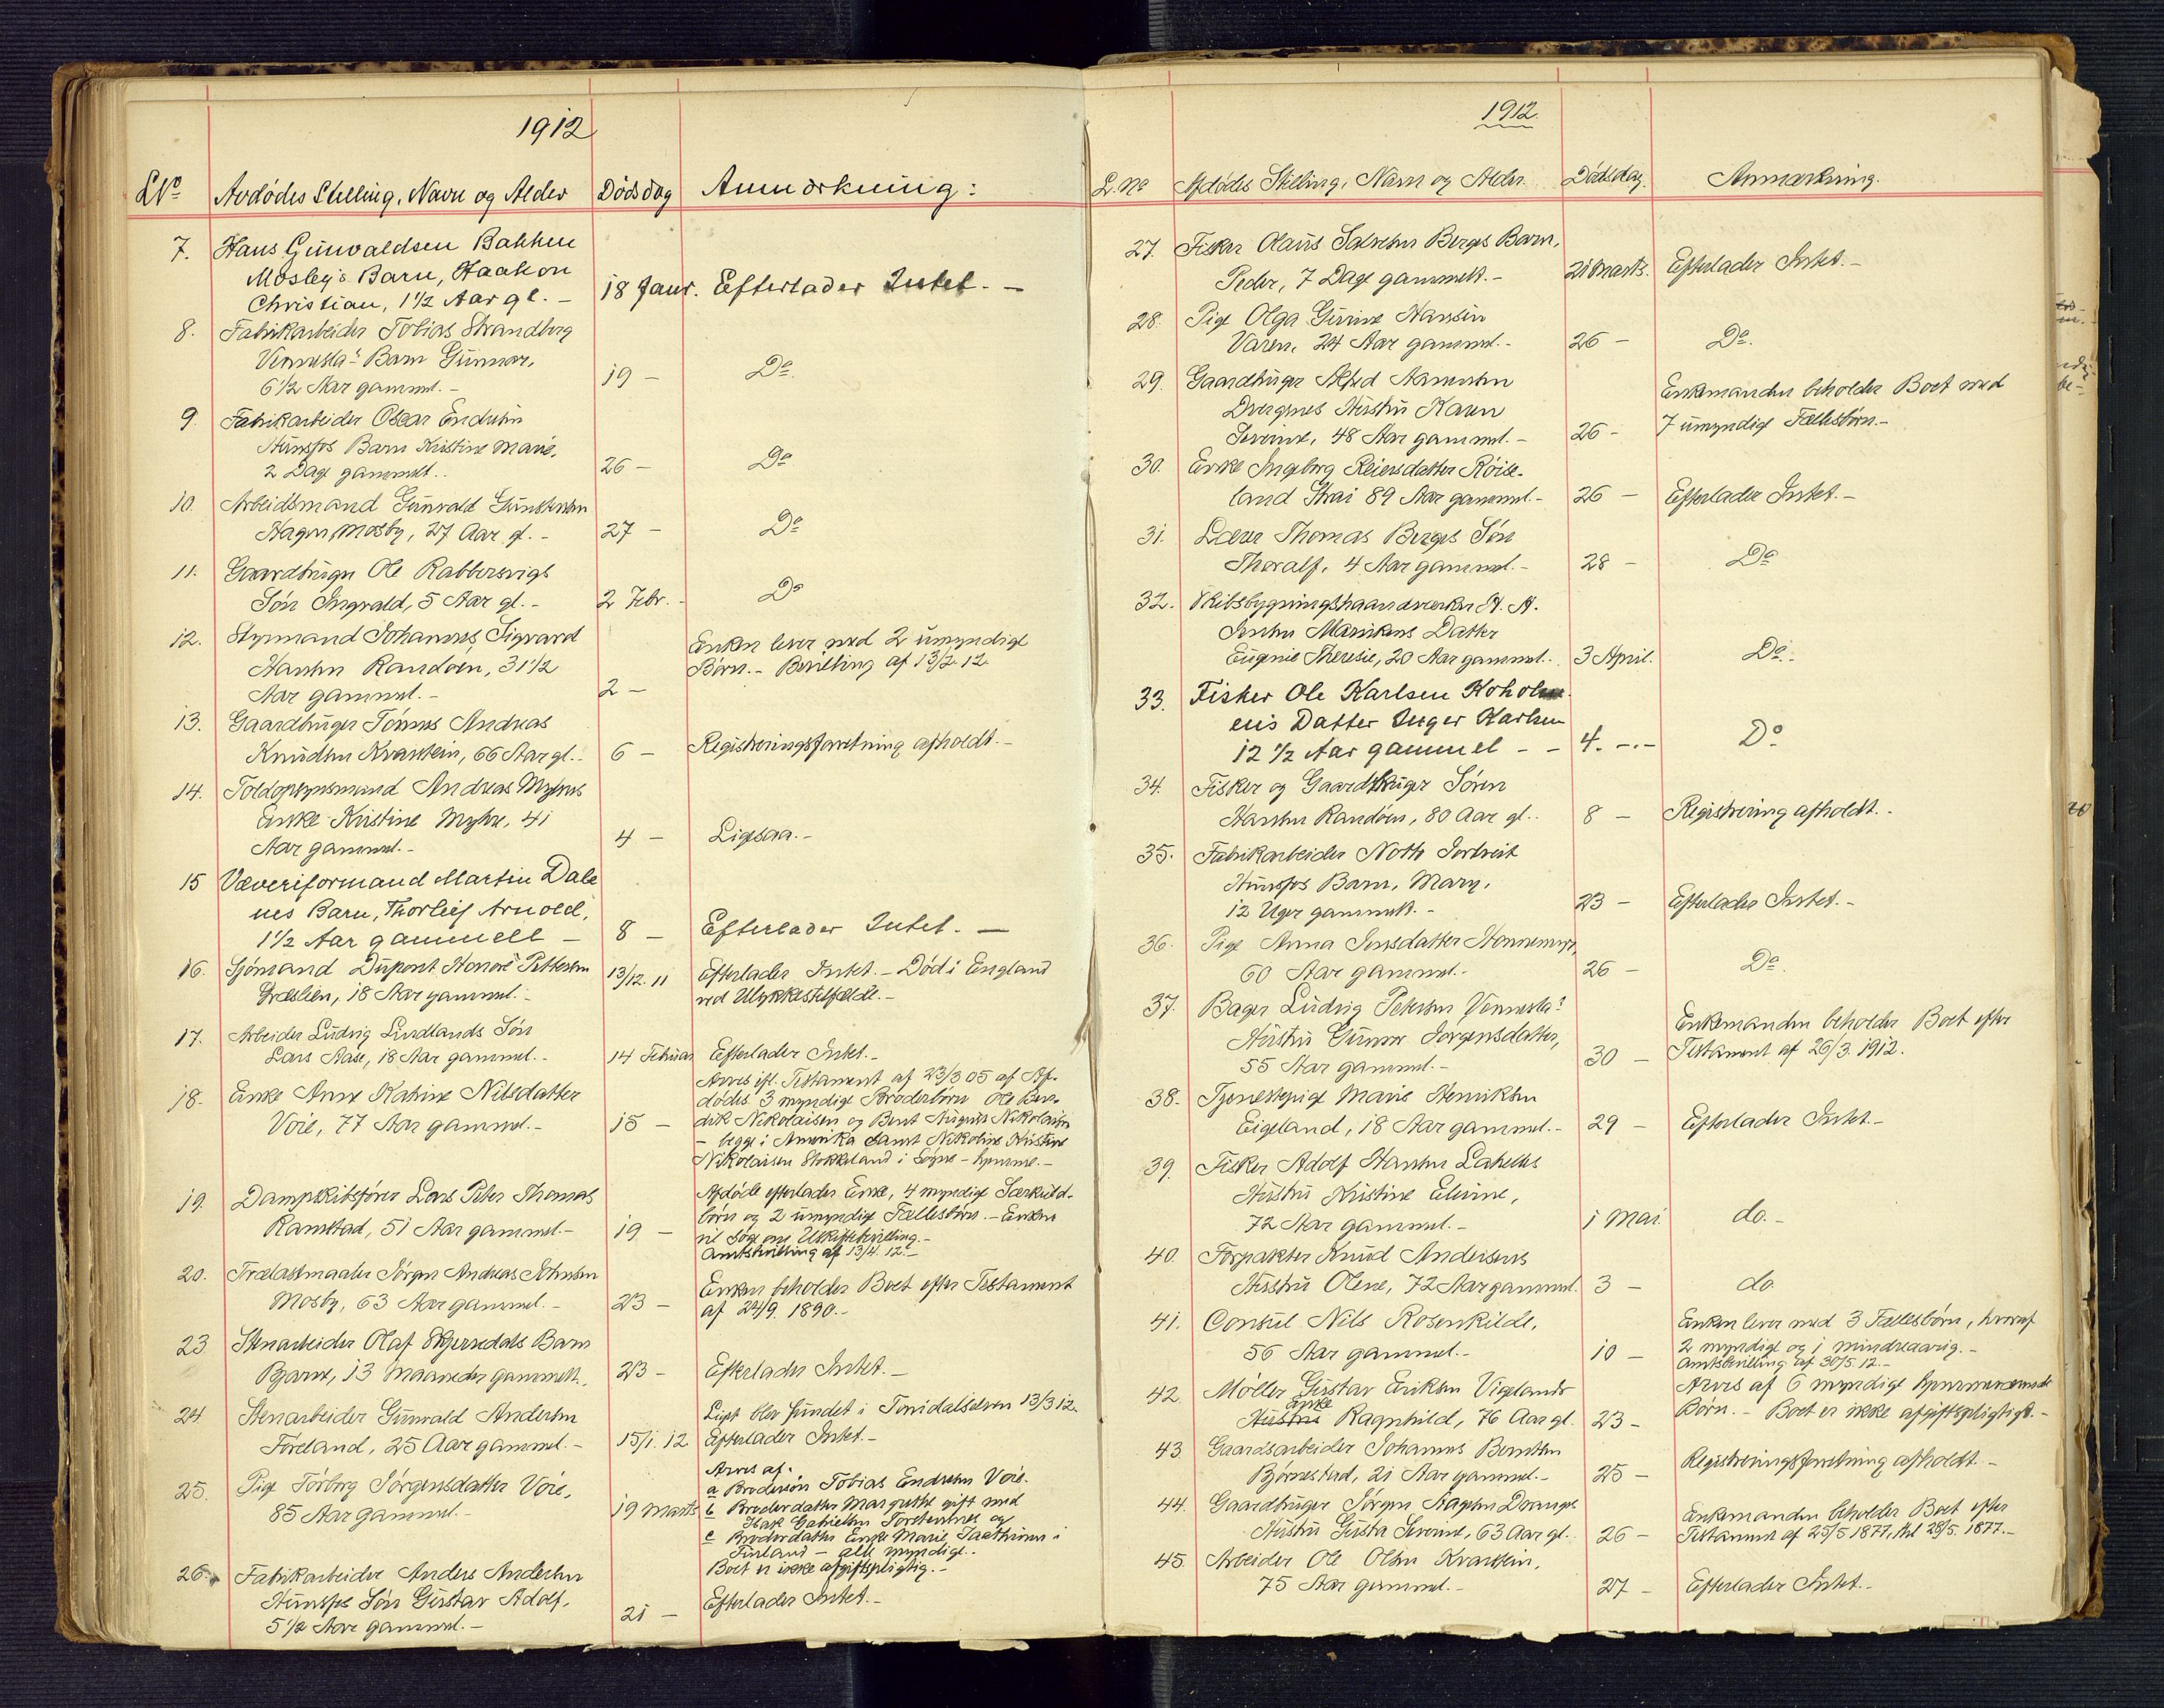 1912
LNo Avdødes Stilling, Navn og Alder Dødsdag Anmærkning:
7. Hans Gunvaldsen Bakken
Mosby's Barn, Haakon
Christian, 1 1/2 Aar gl. – 18 Janr. Efterlader Intet. –
8. Fabrikarbeider Tobias Strandberg
Vennesla's Barn Gunnar,
6 1/2 Aar gammel. – 19 – Do.
9. Fabrikarbeider Oscar Endresen
Hunsfos Barn Kristine Marie,
2 Dage gammelt. 26 – Do
10. Arbeidsmand Gunvald Gunstensen
Hagen, Mosby, 27 Aar gl. – 27 – Do
11. Gaardbruger Ole Rabbersvigs
Søn Ingvald, 5 Aar gl. – 2 Febr. – Do
12. Styrmand Johannes Sigvard
Hansen Randøen, 31 1/2
Aar gammel. – 2 –
Enken lever med 2 umyndige
Børn. – Bevilling af 13/2. 12.
13. Gaardbruger Tønnes Andreas
Knudsen Kvarstein, 66 Aar gl. – 6 – Registreringsforretning afholdt. –
14. Toldopsynsmand Andreas Myhres
Enke Kristine Myhre, 41
Aar gammel. – 4 – Ligesaa. –
15 Væveriformand Martin Dale
nes Barn, Thorleif Arnold,
1 1/2 Aar gammell – 8 – Efterlader Intet. –
16. Sjømand Dupont Honoré Pettersen
Græslien, 18 Aar gammel. – 13/12. 11 Efterlader Intet. – Død i England
ved Ulykkestilfælde. –
17. Arbeider Ludvig Lindlands Søn
Lars Aase, 18 Aar gammel. – 14 Februar Efterlader Intet. –
18. Enke Anne Katrine Nilsdatter
Voie, 77 Aar gammel. – 15 –
Arves ifl. Testament af 23/3 05 af Af-
dødes 3 myndige Broderbørn Ole Ben-
dik Nikolaisen og Bent August Nikolaisen
– begge i Amerika samt Nikoline Kristine
Nikolaisen Stokkeland i Søgne – hjemme. –
19. Dampskibsfører Lars Peter Thomas
Ramstad, 51 Aar gammel – 19 –
Afdøde efterlader Enke, 4 myndige Særkuld-
børn og 2 umyndige Fællesbørn. – Enken
vil søge om Uskiftebevilling. –
Amtsbevilling af 13/4. 12. –
20. Trælastmaaler Jørgen Andreas Johnsen
Mosby, 63 Aar gammel. – 23 –
Enken beholder Boet efter Testament
af 24/9. 1890. –
23 Stenarbeider Olaf Skjerredals Barn
Bjarne, 13 Maaneder gammelt. 23 – Efterlader Intet. –
24. Stenarbeider Gunvald Andersen
Føreland, 25 Aar gammel. – 15/1. 12
Liget blev fundet i Torridalselven 13/3 12.
Efterlader Intet. –
25. Pige Torborg Jørgensdatter Voie,
85 Aar gammel. – 19 Marts
Arves af:
a Brodersøn Tobias Endresen Voie.
b Broderdatter Margrethe gift med
Isak Gabrielsen Torstennes og
c Broderdatter Enke Marie i
Finland – alle myndige.
Boet er ikke afgiftspligtig. –
26. Fabrikarbeider Anders Andersen
Hunsfos Søn Gustav Adolf,
5 1/2 Aar gammel. – 21 – Efterlader Intet. –
1912.
L. No Afdødes Stilling, Navn og Alder Dødsdag. Anmærkning.
27. Fisker Olaus Salvesen Berges Barn,
Peder, 7 Dage gammelt. – 21 Marts. Efterlader Intet. –
28. Pige Olga Gurine Hansen
Varen, 24 Aar gammel. – 26 – Do.
29. Gaardbruger Alfred Aanensen
Dvergsnes Hustru Karen
Severine, 48 Aar gammel. – 26 –
Enkemanden beholder Boet med
7 umyndige Fællesbørn. –
30. Enke Ingeborg Reiersdatter Røise-
land Strai 89 Aar gammel. – 26 – Efterlader Intet. –
31. Lærer Thomas Berges Søn
Thoralf, 4 Aar gammel. – 28 – Do
32. Skibsbygningshaandværker A. A.
Jensen Marvikens Datter
Eugenie Theresie, 20 Aar gammel. 3 April. Do. –
33. Fisker Ole Karlsen Koholm
ens Datter Inger Karlsen
12 1/2 Aar gammel – – 4. –.– Do
34. Fisker og Gaardbruger Søren
Hansen Randøen, 80 Aar gl. 8 – Registrering afholdt. –
35. Fabrikarbeider Noth Jortveit
Hunsfos Barn, Mary,
12 Uger gammelt. – 23 – Efterlader Intet. –
36. Pige Anna Jensdatter Honnemyr,
60 Aar gammel. – 26 – Do.
37. Bager Ludvig Petersen Vennesla's
Hustru Gunvor Jørgensdatter,
55 Aar gammel. – 30 –
Enkemanden beholder Boet efter
Testament af 26/3. 1912.
38. Tjenestepige Marie Henriksen
Eigeland, 18 Aar gammel. – 29 – Efterlader Intet. –
39. Fisker Adolf Hansen Lahelles
Hustru Kristine Elevine,
72 Aar gammel. – 1 Mai. do. –
40. Forpakter Knud Andersens
Hustru Olene, 72 Aar gammel. 3 – do.
41. Consul Nils Rosenkilde,
56 Aar gammel. – 10 –
Enken lever med 3 Fællesbørn, hvoraf
2 myndige og 1 mindreaarig. –
Amtsbevilling af 30/5 12. –
42. Møller Gustav Eriksen Vigelands
Enke
Hustru Ragnhild, 76 Aar gl. 23 –
Arves af 6 myndige hjemmeværende
Børn. – Boet er ikke afgiftspligtigt. –
43. Gaardsarbeider Johannes Berntsen
Bjørnestad, 21 Aar gammel. – 25 – Registreringsforretning afholdt. –
44. Gaardbruger Jørgen Aagesen Drange
Hustru Gusta Severine, 63 Aar gl. 26 –
Enkemanden beholder Boet efter
Testament af 25/5 1877, thl 28/5. 1877. –
45. Arbeider Ole Olsen Kvarstein,
75 Aar gammel. – 27 – Efterlader Intet. –